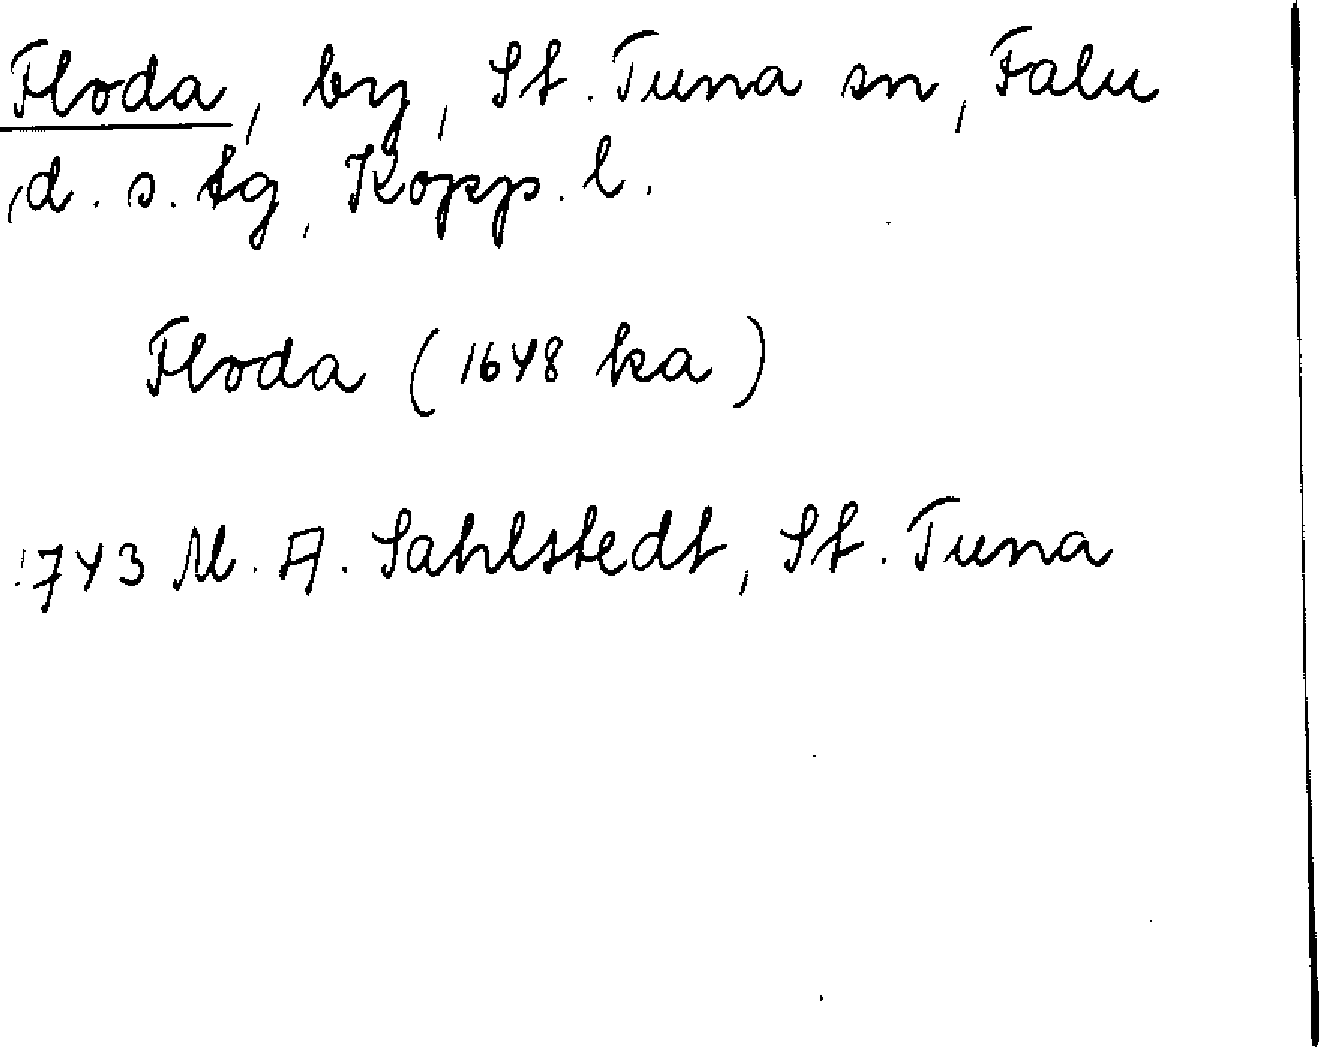 Floda, by, St. Tuna sn, Falu
d. s. tg, Kopp. l.
Floda (1648 ka)
1743 M. A. Sahlstedt, St. Tuna